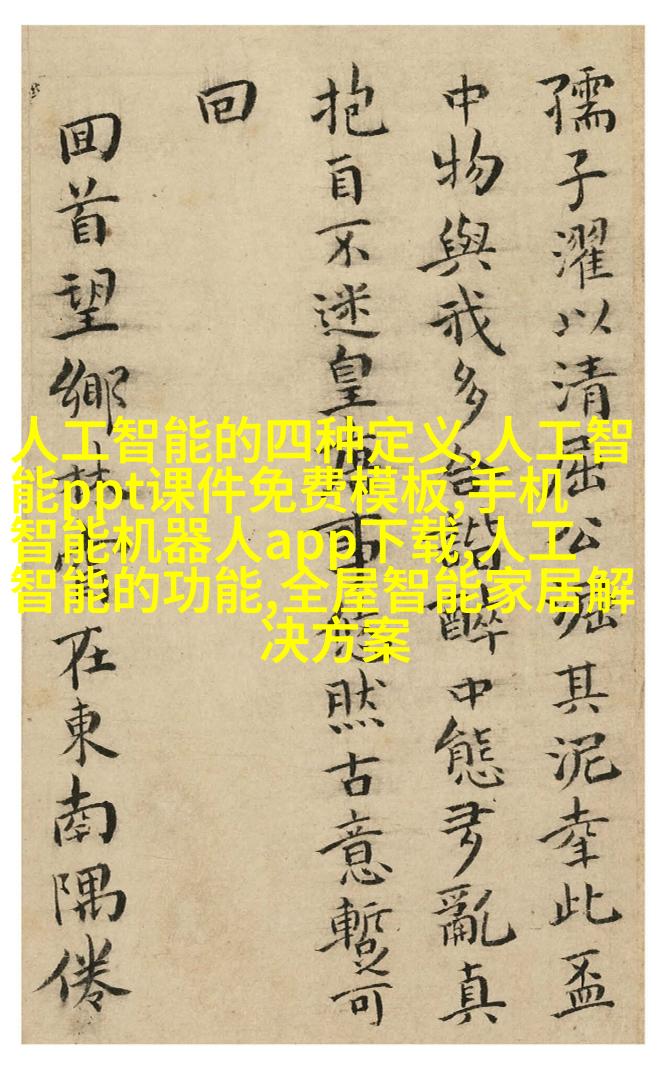 孺子濯以清屈公掘其泥此盃
中物與我多諧醉中態多亂真
抱自不迷皇然古意暫可
回
回首望鄉在東南隅倦
人工智能的四种定义,人工智
能ppt课件免费模板,手机
智能机器人app下载,人工
智能的功能,全屋智能家居解
决方案